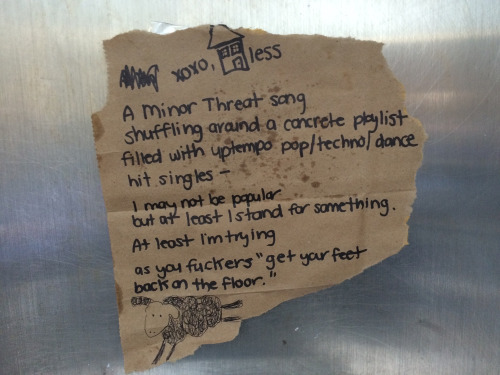 xoxo, less
A Minor Threat song
shuffling around a concrete playlist
filled with uptempo pop/techno/dance
hit singles –
I may not be popular
but at least I stand for something.
At least i'm trying
as you fuckers "get your feet
back on the floor."